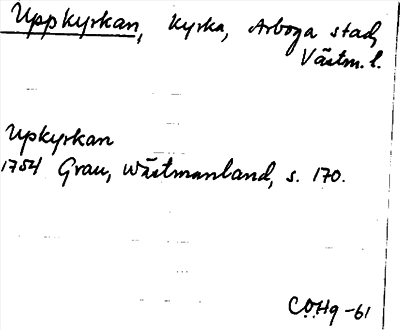 Uppkyrkan, kyrka, Arboga stad,
Västm. l.
Upkyrkan
1754 Grau, Wästmanland, s. 170.
C.O.Hg -61